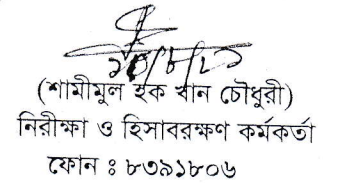 (শামীমুল হক খান চৌধুরী)
নিরীক্ষা ও হিসাবরক্ষণ কর্মকর্তা
ফোন ঃ ৮৩৯১৮০৬